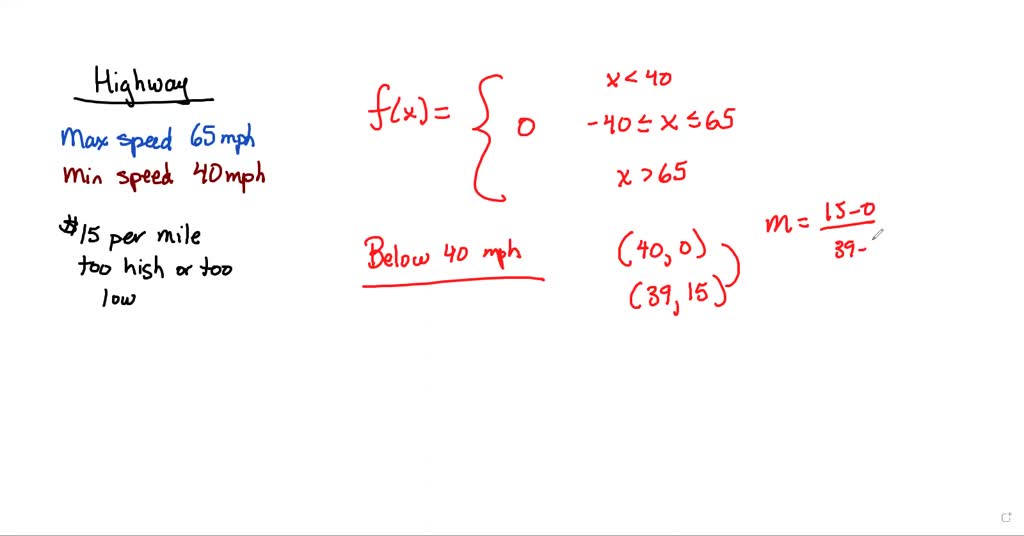 Highway
Max speed 65 mph
Min speed 40 mph
$15 per mile
too high or too
low
f(x) = { 0
x < 40
-40 ≤ x ≤ 65
x > 65
Below 40 mph
(40, 0)
(39, 15)
m = 15-0
39-